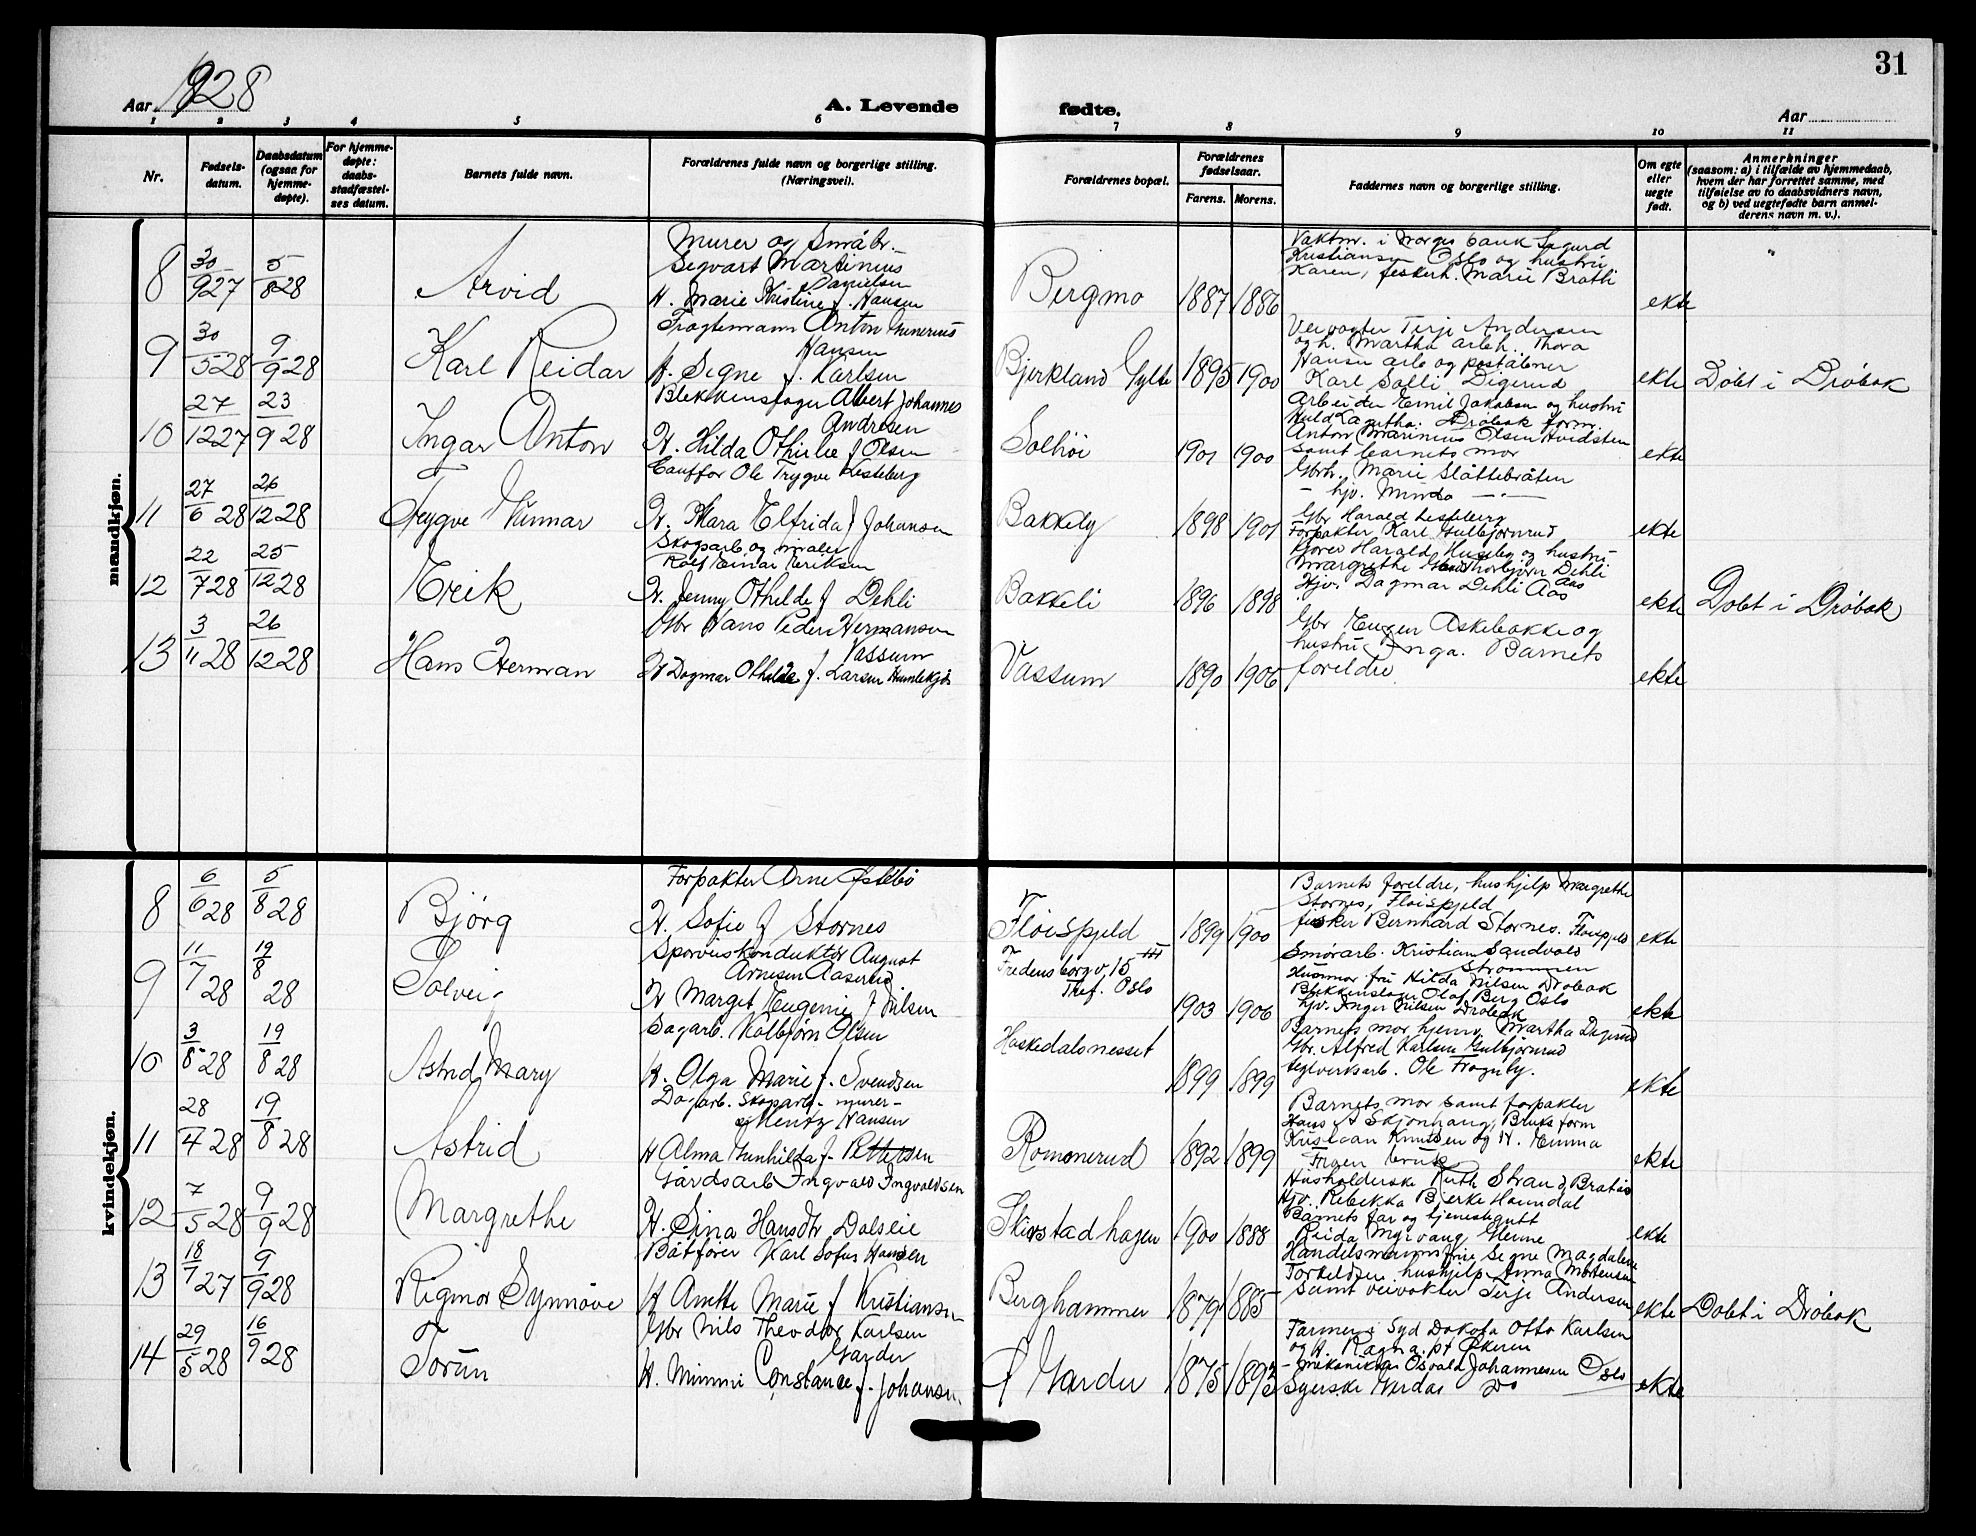 31
Aar 1928
A. Levende fødte.
Aar
1 2 3 4 5 6 7 8 9 10 11
Nr.
Fødsels-
datum.
Daabsdatum
(ogsaa for
hjemme-
døpte).
For hjemme-
døpte:
daabs-
stadfæstel-
ses datum.
Barnets fulde navn.
Forældrenes fulde navn og borgerlige stilling.
(Næringsvei).
Forældrenes bopæl.
Forældrenes
fødselsaar.
Farens. Morens.
Faddernes navn og borgerlige stilling.
Om egte
eller
uegte
født.
Anmerkninger
(saasom: a) i tilfælde av hjemmedaab,
hvem der har forrettet samme, med
tilføielse av to daabsvidners navn,
og b) ved uegtefødte barn anmel-
derens navn m. v.).
mandkjøn.
8 30/9 27 5/8 28 Arvid
Murer og Småbr.
Sigvart Martinius
Danielsen
H. Marie Kristine f. Hansen
Bergmo 1887 1886
Vaktm. i Norges bank Sigurd
Kristiansen Oslo og hustru
Karen, fiskerh. Marie Bratli
ekte
9 30/5 28 9/9 28 Karl Reidar
Fragtemann Anton Gunerius
Hansen
H. Signe f. Karlsen
Bjerkland Gylte 1895 1900
Veivogter Terje Andersen
og h. Martha arbh. Thora
Hansen arb og poståbner
Karl Solli Digerud
ekte Døbt i Drøbak
10 27/12 27 23/9 28 Ingar Anton
Blekkenslager Albert Johannes
Andresen
H. Hilda Othilie f Olsen
Solhöi 1901 1900
Arbeider Emil Jakobsen og hustru
Huld Agatha. Drøbak form.
Anton Marinius Olsen Hvidsten
samt barnets mor
ekte
11 27/6 28 26/12 28 Trygve Gunnar
Cauffør Ole Trygve Lesteberg
H. Klara Elfrida f Johansen
Bakkely 1898 1901
Gbrh. Marie Slåttebråten
- hjv. Minda -
Gbr Harald Lesteberg
Forpakter Karl Gulbjørnrud
ekte
12 22/7 28 25/12 28 Erik
Skogsarb og maler
Rolf Einar Eriksen
H. Jenny Othilde f Dehli
Bakkeli 1896 1898
Kjører Harald Huseby og hustru
Margrethe Thorbjørn Dehli
Aas
Hjv. Dagmar Dehli Aas
ekte Døbt i Drøbak
13 3/11 28 26/12 28 Hans Herman
Gbr Hans Peder Hermansen
Vassum
H Dagmar Othilde f. Larsen Humlekjær
Vassum 1890 1906
Gbr Eugen Askebakke og
hustru Inga. Barnets
foreldre
ekte
kvindekjøn.
8 6/6 28 5/8 28 Bjørg
Forpakter Arne Østebø
H. Sofie f Stornes
Fløispjeld 1899 1900
Barnets foreldre, hushjelp Margrethe
Stornes, Fløispjeld
fisker Bernhard Stornes. Fløispjeld
ekte
9 11/7 28 19/8 28 Solveig
Sporveiskonduktør August
Arnesen Aaserud
H Marget Eugenie f Nilsen
Fredensborgv. 15 III
Thef. Oslo
1903 1906
Smörarb. Kristian Sandvold
Strømmen
Husmor fru Hilda Nilsen Drøbak
Blikkenslager Olaf Berg Oslo
hjv. Inger Nilsen Drøbak
ekte
10 3/8 28 19/8 28 Astrid Mary
Sagarb. Kolbjørn Olsen
H. Olga Marie f. Svendsen
Haskedalsnesset 1899 1899
Barnets mor hjemv. Martha Digerud
Gbr. Alfred Karlsen Gulbjørnrud
teglverksarb. Ole Frognby.
ekte
11 28/4 28 19/8 28 Astrid
Dagarb. Skogsarb. - murer-
Mentz Hansen
H Alma Gunhilda f. Pettersen
Rommerud 1892 1899
Barnets mor samt forpakter
Hans A Skjønhaug, Bruksform
Kristian Knudsen og H. Emma
Froen bruk
ekte
12 7/5 28 9/9 28 Margrethe
Gårdsarb Ingvald Ingvaldsen
H. Sina Hansdtr Dalseie
Skirstadhagen 1900 1888
Husholderske Ruth Strand, Bratås
Hjv. Rebekka Bjerke Haundal
Barnets far og tjenestegutt
Reidar Myrvang Glenne
ekte
13 18/7 27 9/9 28 Rigmor Synnøve
Båtfører Karl Sofus Hansen
H Anette Marie f Kristiansen
Berghammer 1879 1885
Handelsmanns frue Signe Magdalene
Torkildsen hushjelp Anna Mortensen
samt veivokter Terje Andersen
ekte Døbt i Drøbak
14 29/5 28 16/9 28 Torun
Gbr Nils Theodor Karlsen
Garder
H. Mimmi Constance f. Johansen
Garder 1875 1893
Farmer i Syd Dakota Otto Karlsen
og H. Ragna. pt Økern
- Mekaniker Osvald Johannesen Oslo
Syerske Gerda Do
ekte